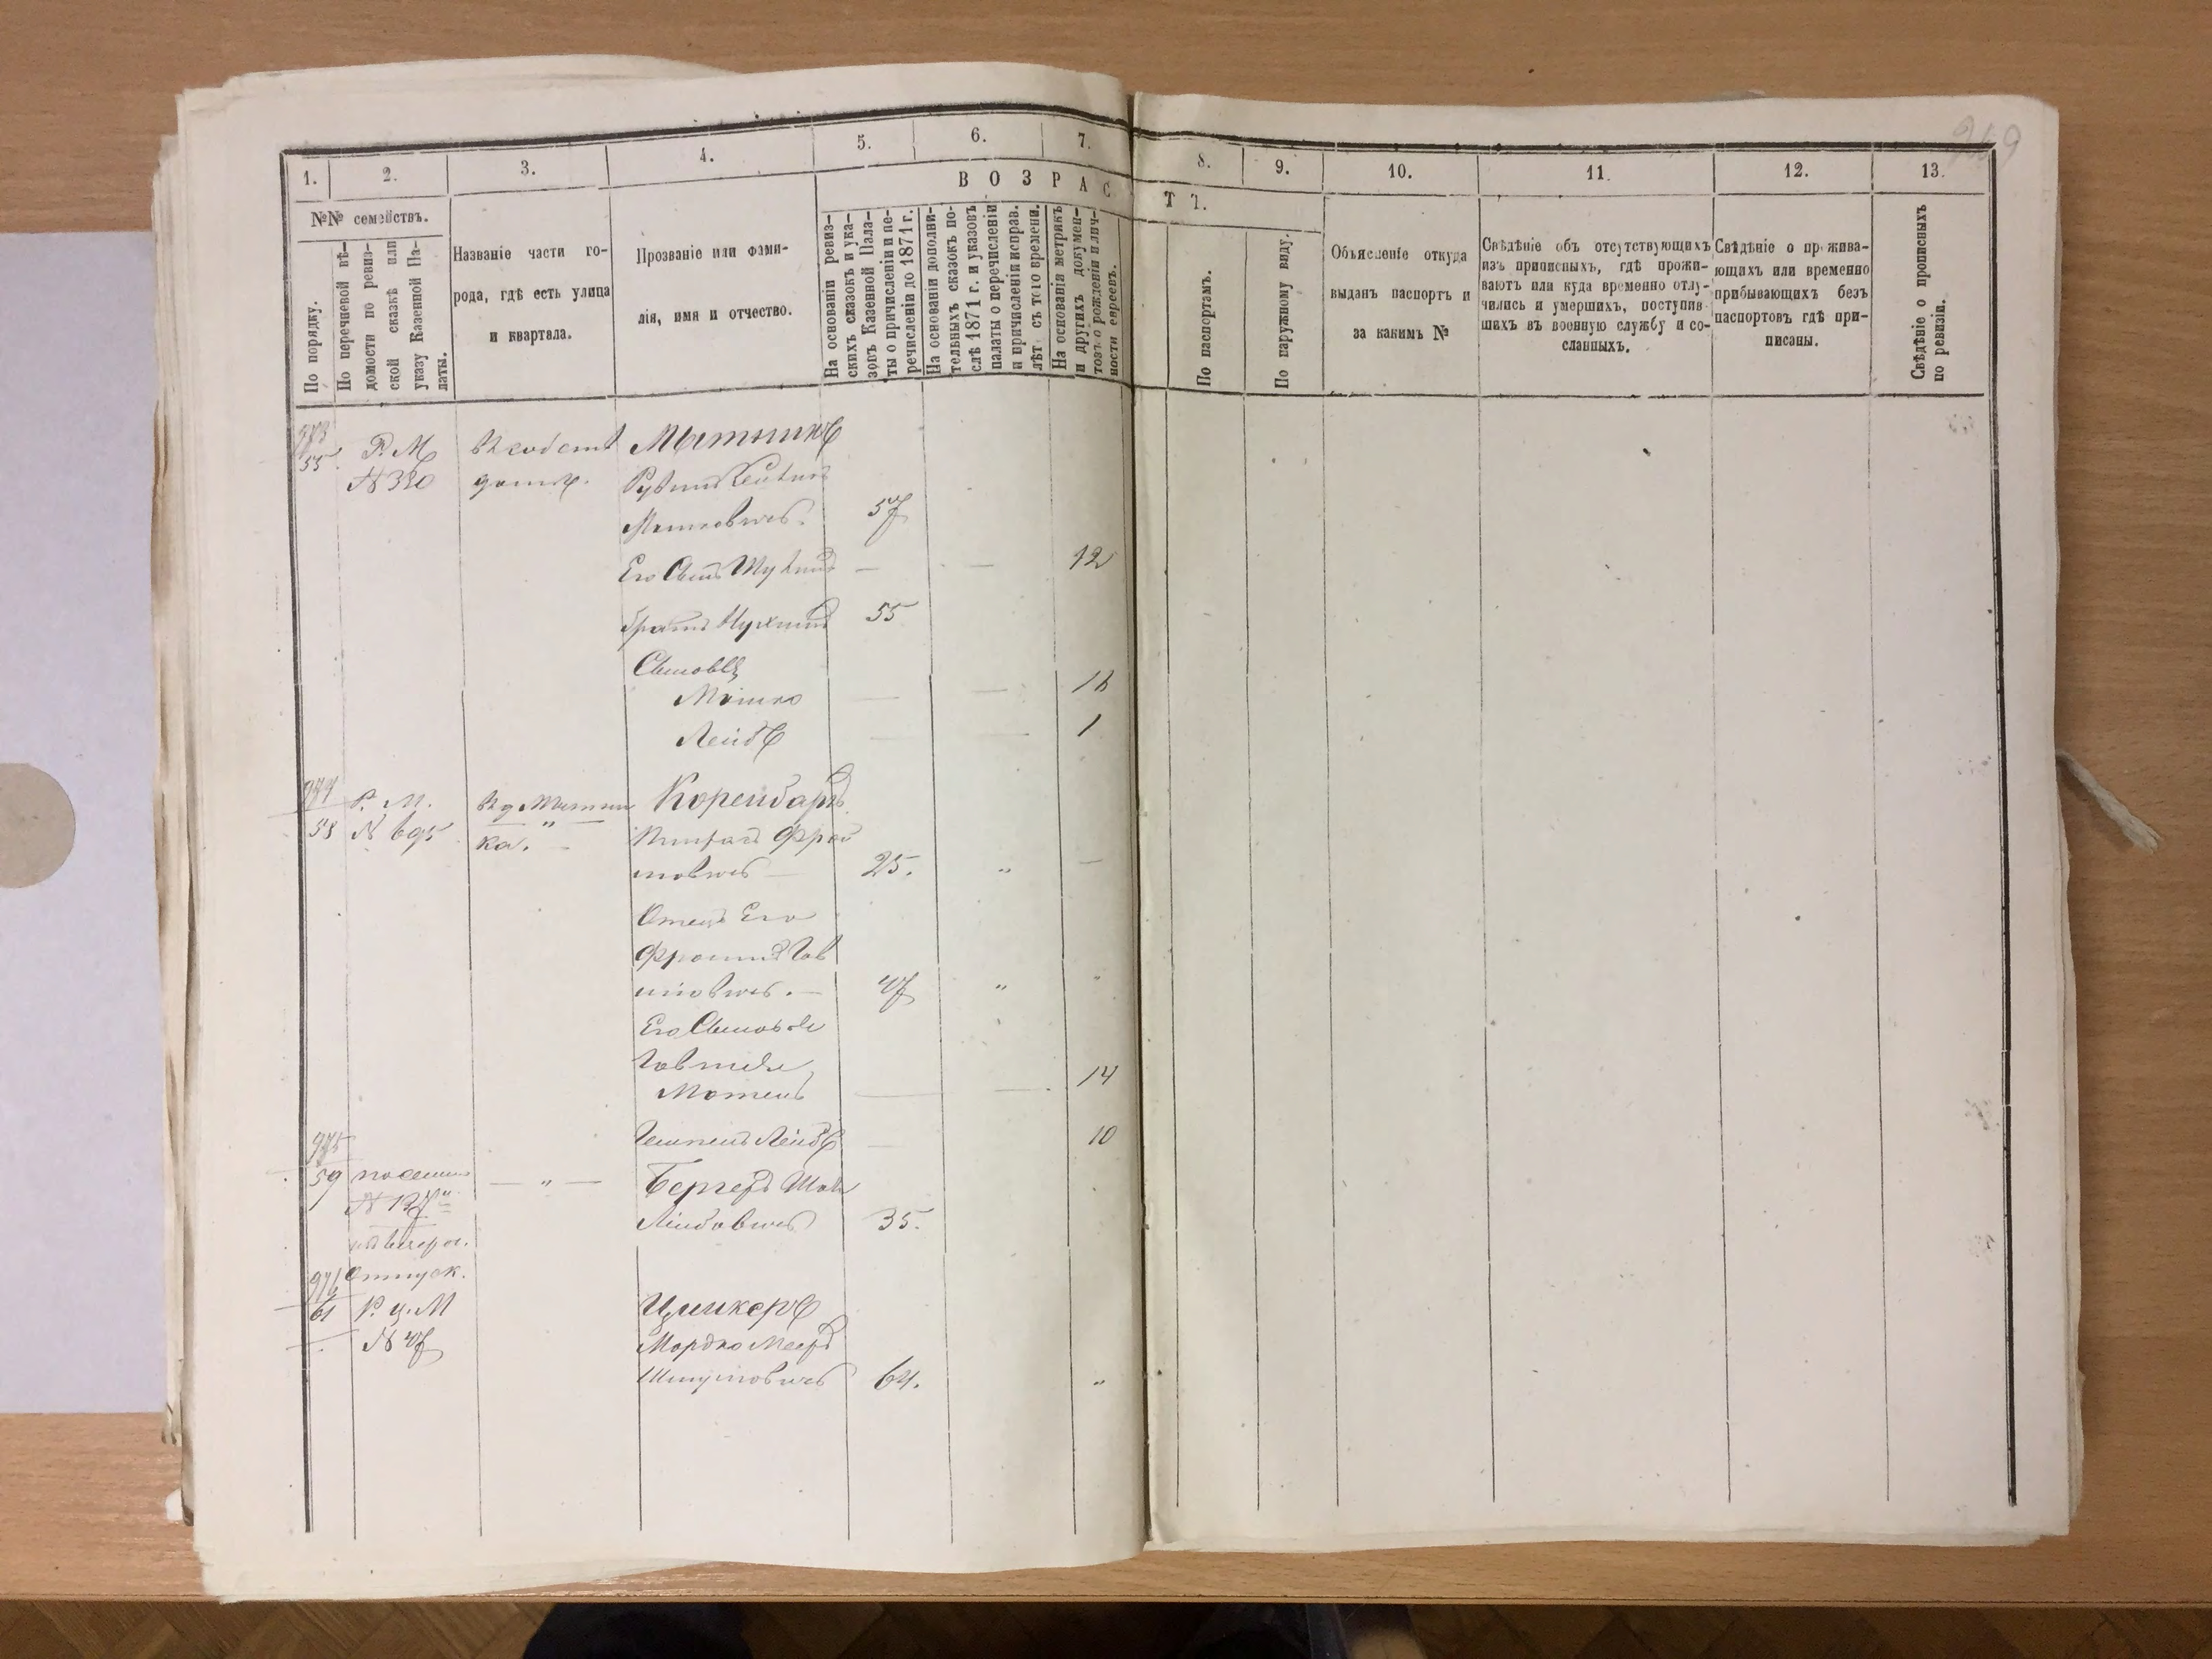 269
1.
2.
3.
4.
5.
6.
7.
8.
9.
10.
11.
12.
13.
ВОЗРАС
ТЪ.
№№ семействъ.
По порядку.
По перечневой вѣ-
домости по ревиз-
ской сказкѣ или
указу Казенной Па-
латы.
Названіе части го-
рода, гдѣ есть улица
и квартала.
Прозваніе или фами-
лія, имя и отчество.
На основаніи ревиз-
скихъ сказокъ и ука-
зовъ Казенной Пала-
ты о причисленіи и пе-
речисленіи до 1871 г.
На основаніи дополни-
тельныхъ сказокъ по-
слѣ 1871 г. и указовъ
палаты о перечисленіи
и причисленіи исправ.
лѣт. съ того времени.
На основаніи метрикъ
и другихъ докумен-
товъ о рожденіи и лич-
ности евреевъ.
По паспортамъ.
По наружному виду.
Объясненіе откуда
выданъ паспортъ и
за какимъ №
Свѣдѣніе объ отсутствующихъ
изъ приписныхъ, гдѣ прожи-
ваютъ или куда временно отлу-
чились и умершихъ, поступив-
шихъ въ военную службу и со-
сланныхъ.
Свѣдѣніе о прожива-
ющихъ или временно
прибывающихъ безъ
паспортовъ гдѣ при-
писаны.
Свѣдѣніе о прописныхъ
по ревизіи.
973
55 Р. М. Въ собств Мытникъ
№ 330 домѣ. Рувинъ
Мошковичъ. 57
Его Сынъ — — 12
братъ Нухимъ 55
Сыновья
Мошко — —
Лейбъ — — 1
974 Р. М. Коренбаръ
58 № 695 ка.
мовичъ — 25. " —
Отецъ Его
Фроимъ Гов
шіовичъ. — 47 " "
Его Сыновья
Мотель — — 14
Лейбъ — 10
975
59 — " — Бергеръ
№ 137
Лейбовичъ 35.
976 отпуск.
61 Р. ц. М Цинкеръ
№ 47 Мордко Мееръ
Шмулiовичъ 64. "